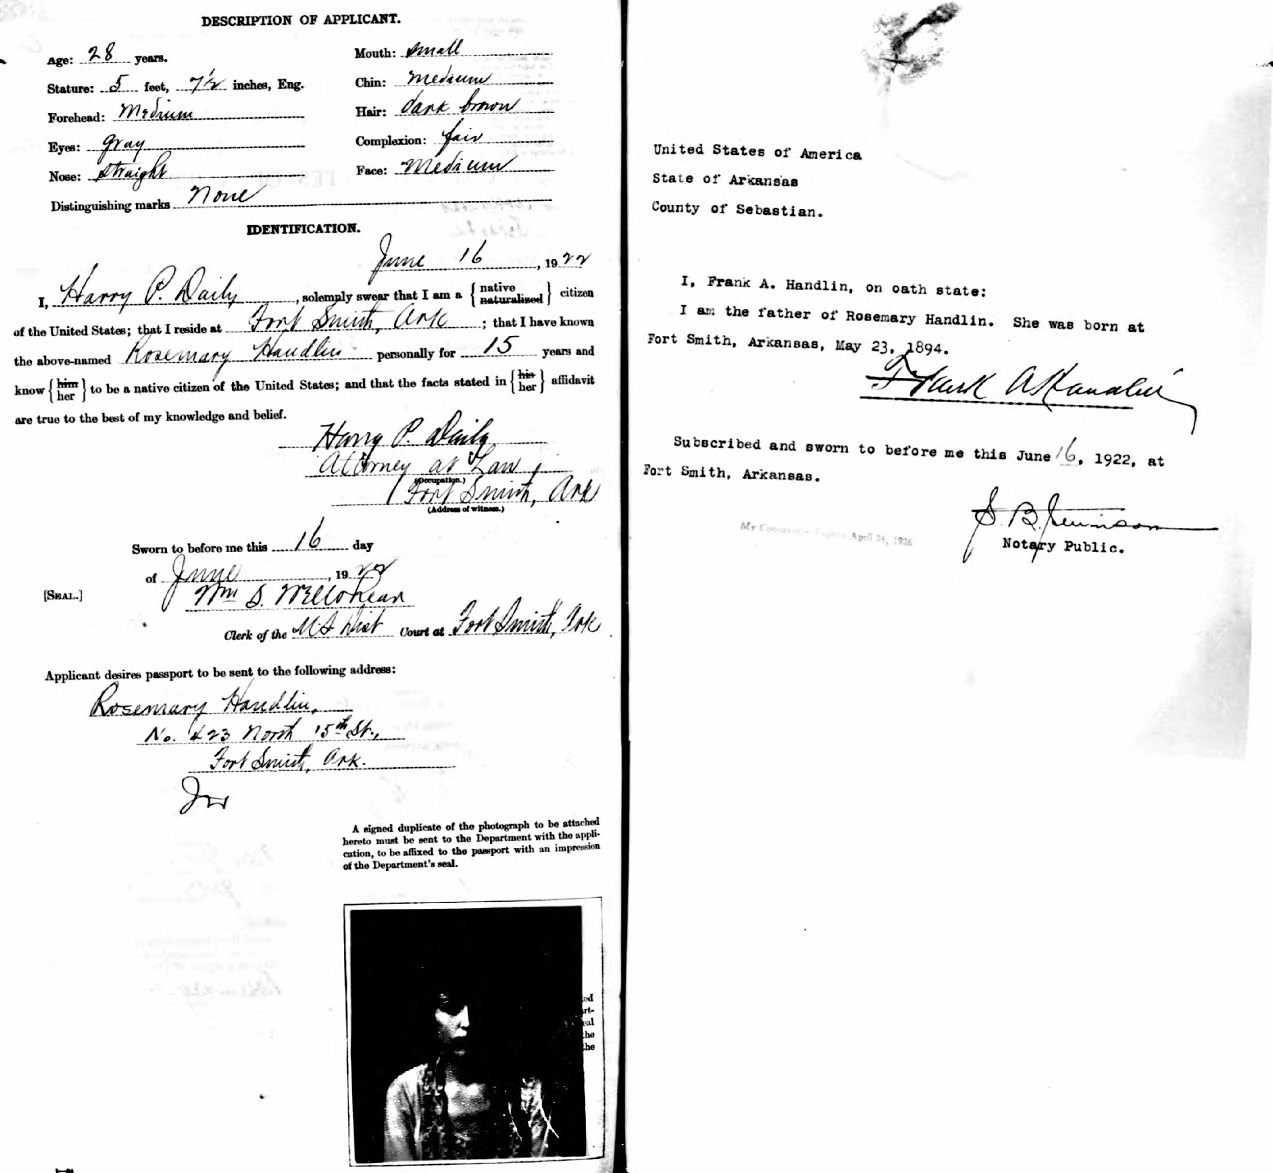 DESCRIPTION OF APPLICANT.
Age: 28 years.
Mouth: small
Stature: 5 feet, 7½ inches, Eng.
Chin: Medium
Forehead: Medium
Hair: dark brown
Eyes: gray
Complexion: fair
Nose: straight
Face: Medium
Distinguishing marks None
IDENTIFICATION.
June 16, 1922
I, Harry P. Daily, solemnly swear that I am a {native naturalized} citizen
of the United States; that I reside at Fort Smith, Ark; that I have known
the above-named Rosemary Handlin personally for 15 years and
know {him her} to be a native citizen of the United States; and that the facts stated in {his her} affidavit
are true to the best of my knowledge and belief.
Harry P. Daily
Attorney at Law,
(Occupation.)
Fort Smith, Ark
(Address of witness.)
Sworn to before me this 16 day
of June, 1922
[SEAL.]
Wm S. Wellshear
Clerk of the US Dist Court at Fort Smith, Ark
Applicant desires passport to be sent to the following address:
Rosemary Handlin,
No. 423 North 15th St.,
Fort Smith, Ark.
A signed duplicate of the photograph to be attached
hereto must be sent to the Department with the appli-
cation, to be affixed to the passport with an impression
of the Department's seal.
ed
rt-
eal
the
the
United States of America
State of Arkansas
County of Sebastian.
I, Frank A. Handlin, on oath state:
I am the father of Rosemary Handlin. She was born at
Fort Smith, Arkansas, May 23, 1894.
Frank A Handlin
Subscribed and sworn to before me this June 16, 1922, at
Fort Smith, Arkansas.
S. B.
My Commission Expires April 24, 1926
Notary Public.